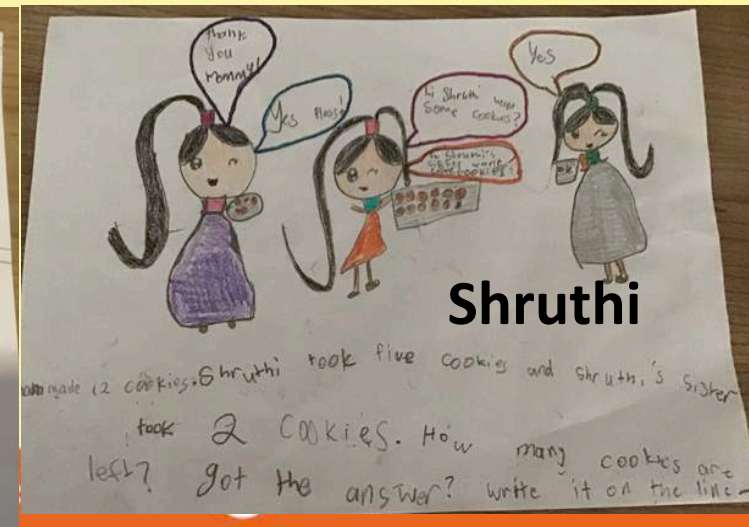 Thank
You
Mommy!
Yes
Hi Shruthi want
Some cookies?
Yes
Shruthi's
want
cookies?
Shruthi
made 12 cookies. Shruthi took five cookies and Shruthi's Sister
took 2 Cookies. How many cookies are
left? got the answer? write it on the line